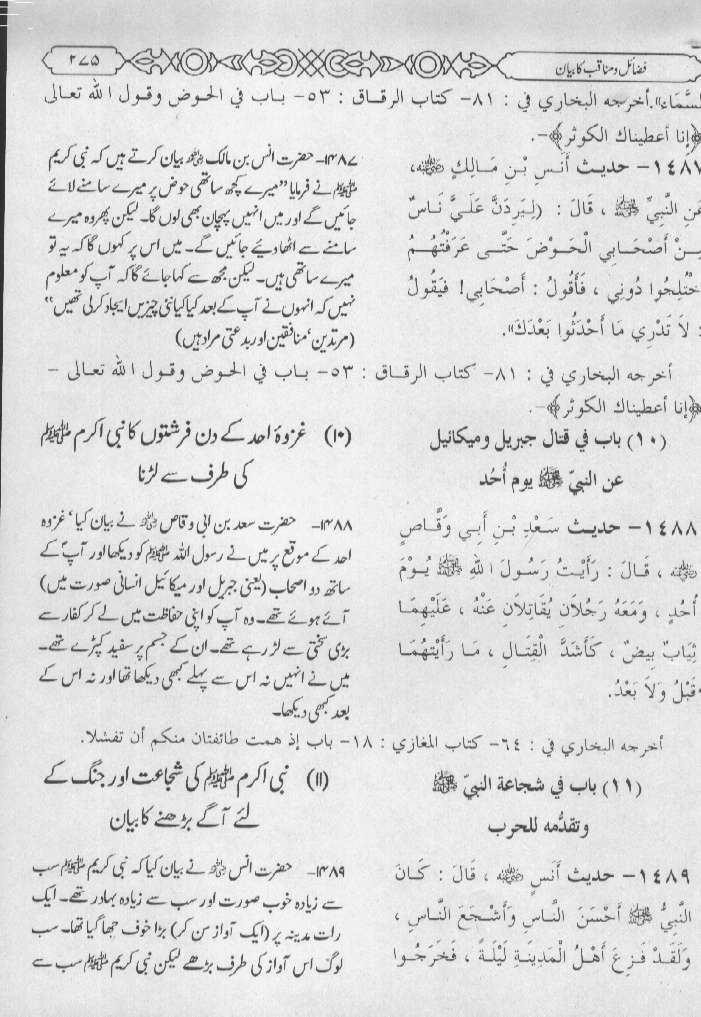 ۲۷۵
فضائل ومناقب کا بیان
السَّمَاءِ». أخرجه البخاري في : ٨١- كتاب الرقاق : ٥٣- باب في الحوض وقول الله تعالى
﴿إنا أعطيناك الكوثر﴾-.
١٤٨٧- حديث أَنَسِ بْنِ مَالِكٍ رضي الله عنه،
عَنِ النَّبِيِّ ﷺ ، قَالَ : (لَيَرِدَنَّ عَلَيَّ نَاسٌ
مِنْ أَصْحَابِي الْحَوْضَ حَتَّى عَرَفْتُهُمُ
اخْتُلِجُوا دُونِي ، فَأَقُولُ : أَصْحَابِي! فَيَقُولُ
: لاَ تَدْرِي مَا أَحْدَثُوا بَعْدَكَ».
۱۴۸۷- حضرت انس بن مالک رضی اللہ عنہ بیان کرتے ہیں کہ نبی کریم
ﷺ نے فرمایا ”میرے کچھ ساتھی حوض پر میرے سامنے لائے
جائیں گے اور میں انہیں پہچان بھی لوں گا۔ لیکن پھر وہ میرے
سامنے سے اٹھا دیئے جائیں گے۔ میں اس پر کہوں گا کہ یہ تو
میرے ساتھی ہیں۔ لیکن مجھ سے کہا جائے گا کہ آپ کو معلوم
نہیں کہ انہوں نے آپ کے بعد کیا کیا نئی چیزیں ایجاد کرلی تھیں“
(مرتدین‘ منافقین اور بدعتی مراد ہیں)
أخرجه البخاري في : ٨١- كتاب الرقاق : ٥٣- باب في الحوض وقول الله تعالى -
﴿إنا أعطيناك الكوثر﴾-.
(١٠) باب في قتال جبريل وميكائيل
عن النبيّ ﷺ يوم أُحُد
(۱۰) غزوۂ احد کے دن فرشتوں کا نبی اکرم ﷺ
کی طرف سے لڑنا
١٤٨٨- حديث سَعْدِ بْنِ أَبِي وَقَّاصٍ
رضي الله عنه ، قَالَ : رَأَيْتُ رَسُولَ اللهِ ﷺ يَوْمَ
أُحُدٍ ، وَمَعَهُ رَجُلاَنِ يُقَاتِلاَنِ عَنْهُ ، عَلَيْهِمَا
ثِيَابٌ بِيضٌ ، كَأَشَدِّ الْقِتَالِ ، مَا رَأَيْتُهُمَا
قَبْلُ وَلاَ بَعْدُ.
۱۴۸۸- حضرت سعد بن ابی وقاص رضی اللہ عنہ نے بیان کیا‘ غزوہ
احد کے موقع پر میں نے رسول اللہ ﷺ کو دیکھا اور آپؐ کے
ساتھ دو اصحاب (یعنی جبریل اور میکائیل انسانی صورت میں)
آئے ہوئے تھے۔ وہ آپ کو اپنی حفاظت میں لے کر کفار سے
بڑی سختی سے لڑ رہے تھے۔ ان کے جسم پر سفید کپڑے تھے۔
میں نے انہیں نہ اس سے پہلے کبھی دیکھا تھا اور نہ اس کے
بعد کبھی دیکھا۔
أخرجه البخاري في : ٦٤- كتاب المغازي : ١٨- باب إذ همت طائفتان منكم أن تفشلا.
(١١) باب في شجاعة النبيّ ﷺ
وتقدُّمه للحرب
(۱۱) نبی اکرم ﷺ کی شجاعت اور جنگ کے
لئے آگے بڑھنے کا بیان
١٤٨٩- حديث أَنَسٍ رضي الله عنه ، قَالَ : كَانَ
النَّبِيُّ ﷺ أَحْسَنَ النَّاسِ وَأَشْجَعَ النَّاسِ ،
وَلَقَدْ فَزِعَ أَهْلُ الْمَدِينَةِ لَيْلَةً ، فَخَرَجُوا
۱۴۸۹- حضرت انس رضی اللہ عنہ نے بیان کیا کہ نبی کریم ﷺ سب
سے زیادہ خوب صورت اور سب سے زیادہ بہادر تھے۔ ایک
رات مدینہ پر (ایک آواز سن کر) بڑا خوف چھا گیا تھا۔ سب
لوگ اس آواز کی طرف بڑھے لیکن نبی کریم ﷺ سب سے